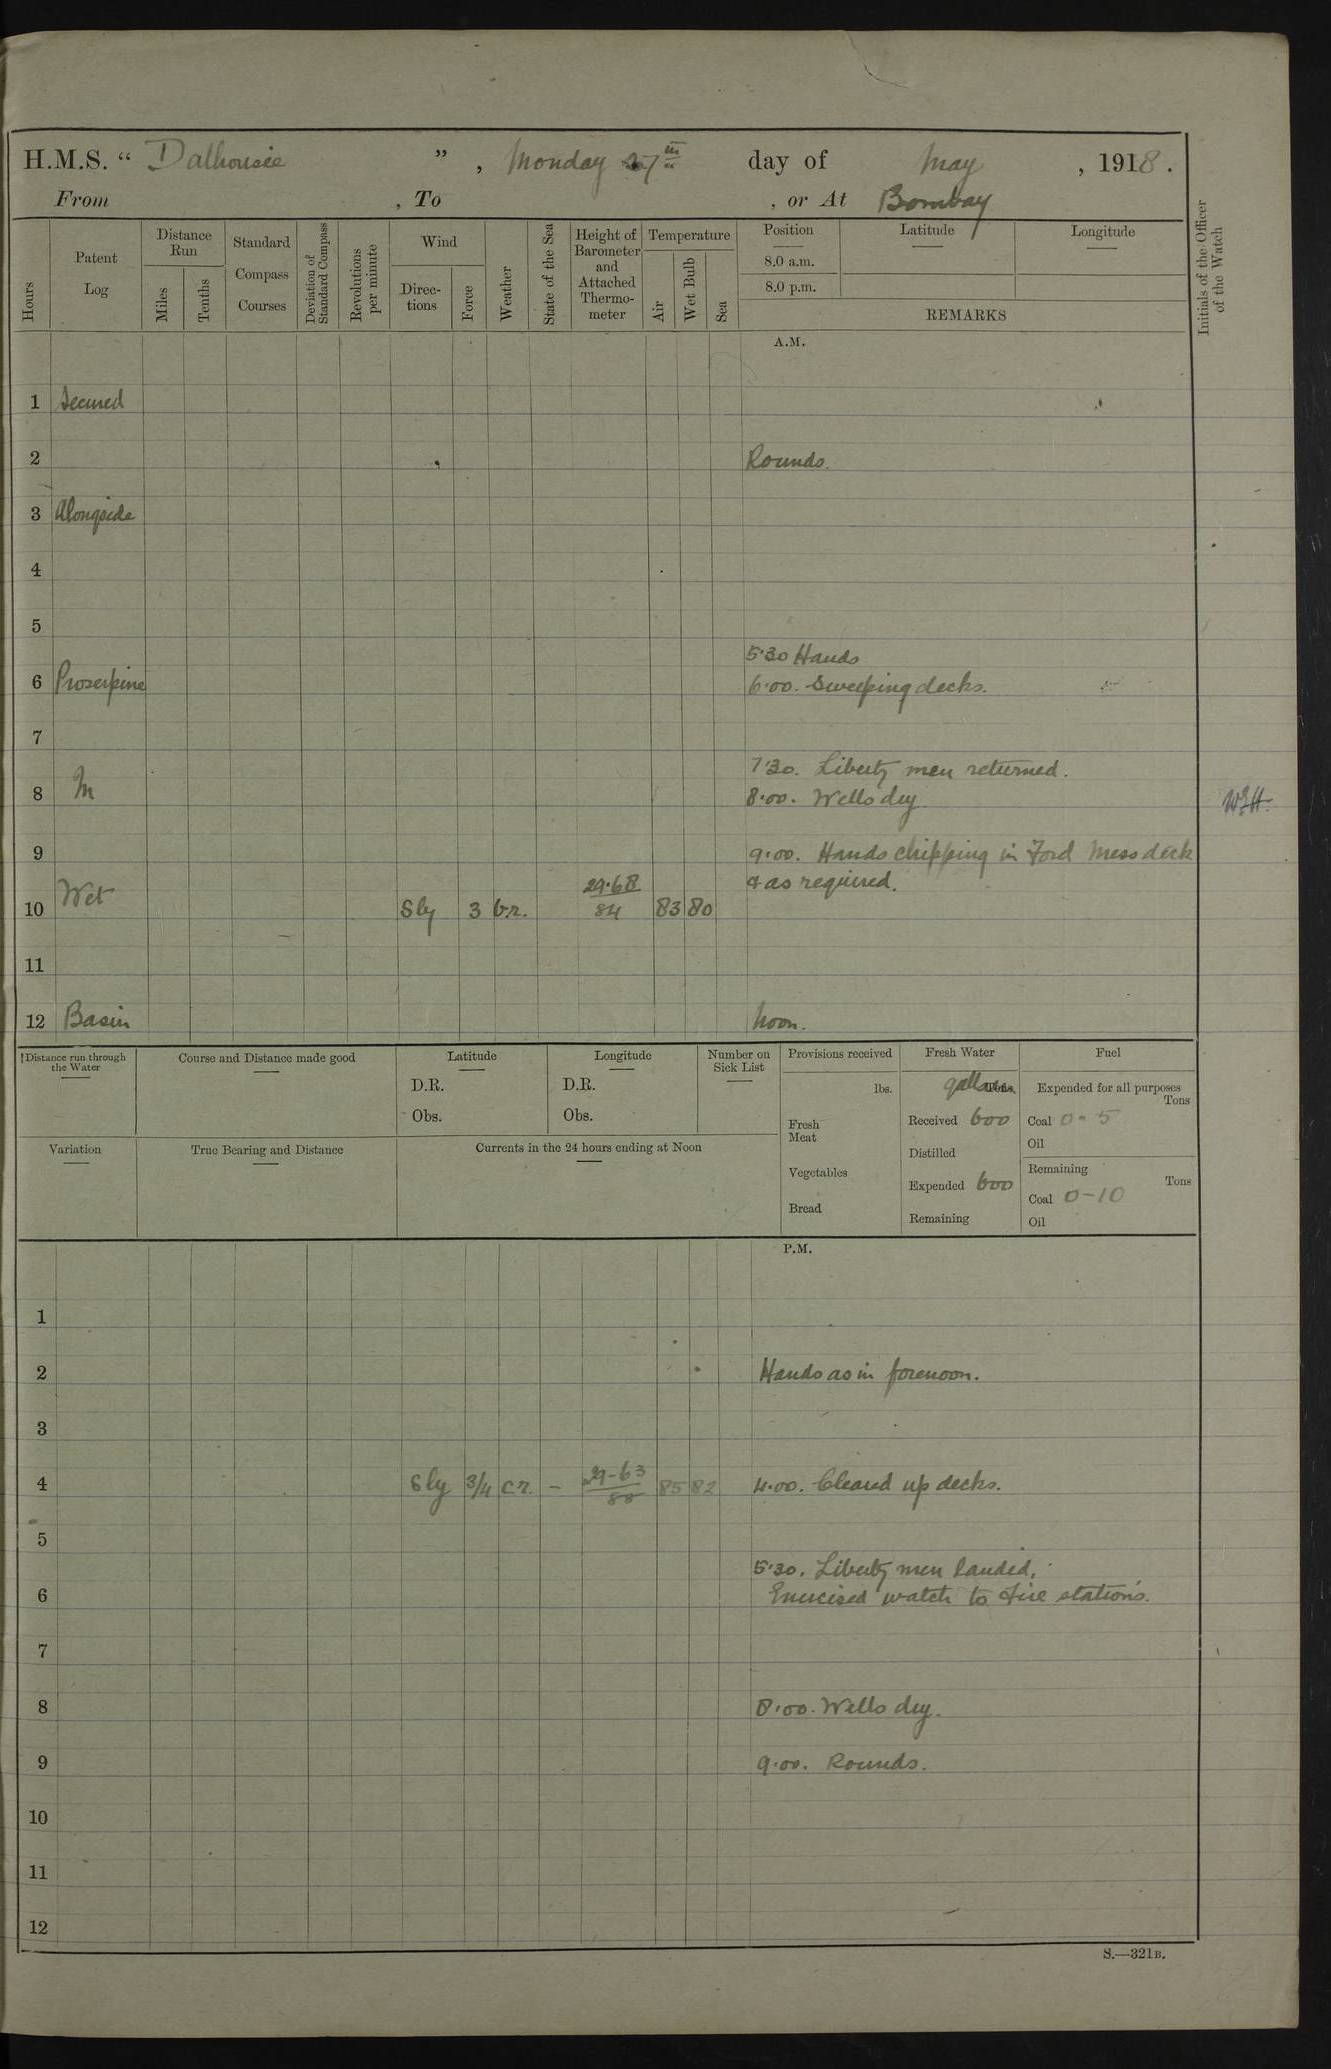 H.M.S. “ Dalhousie ” , Monday 27th day of May , 1918 .
From , To , or At Bombay
Hours
Patent Log
Distance Run
Miles
Tenths
Standard Compass Courses
Deviation of Standard Compass
Revolutions per minute
Wind
Direc-tions
Force
Weather
State of the Sea
Height of Barometer and Attached Thermo-meter
Temperature
Air
Wet Bulb
Sea
Position
8.0 a.m.
8.0 p.m.
Latitude
Longitude
REMARKS
Initials of the Officer of the Watch
A.M.
1 Secured
2 Rounds.
3 Alongside
4
5
5.30 Hands
6 Proserpine 6.00. Sweeping decks.
7
7.30. Liberty men returned.
8 In 8.00. Wells dry
9 9.00. Hands chipping in Ford Mess deck
& as required.
10 Wet Sly 3 b.r. 29.68 84 83 80
11
12 Basin Noon.
Distance run through the Water
Course and Distance made good
Latitude
D.R.
Obs.
Longitude
D.R.
Obs.
Number on Sick List
Provisions received
lbs.
Fresh Meat
Vegetables
Bread
Fresh Water
gallons Tons.
Received 600
Distilled
Expended 600
Remaining
Fuel
Expended for all purposes
Tons
Coal 0-5
Oil
Remaining
Tons
Coal 0-10
Oil
Variation
True Bearing and Distance
Currents in the 24 hours ending at Noon
P.M.
1
2 Hands as in forenoon.
3
4 Sly 3/4 c.r. - 29-63 88 85 82 4.00. Cleared up decks.
5
5.30. Liberty men landed.
6 Exercised watch to fire stations.
7
8 8.00. Wells dry.
9 9.00. Rounds.
10
11
12
S.—321B.